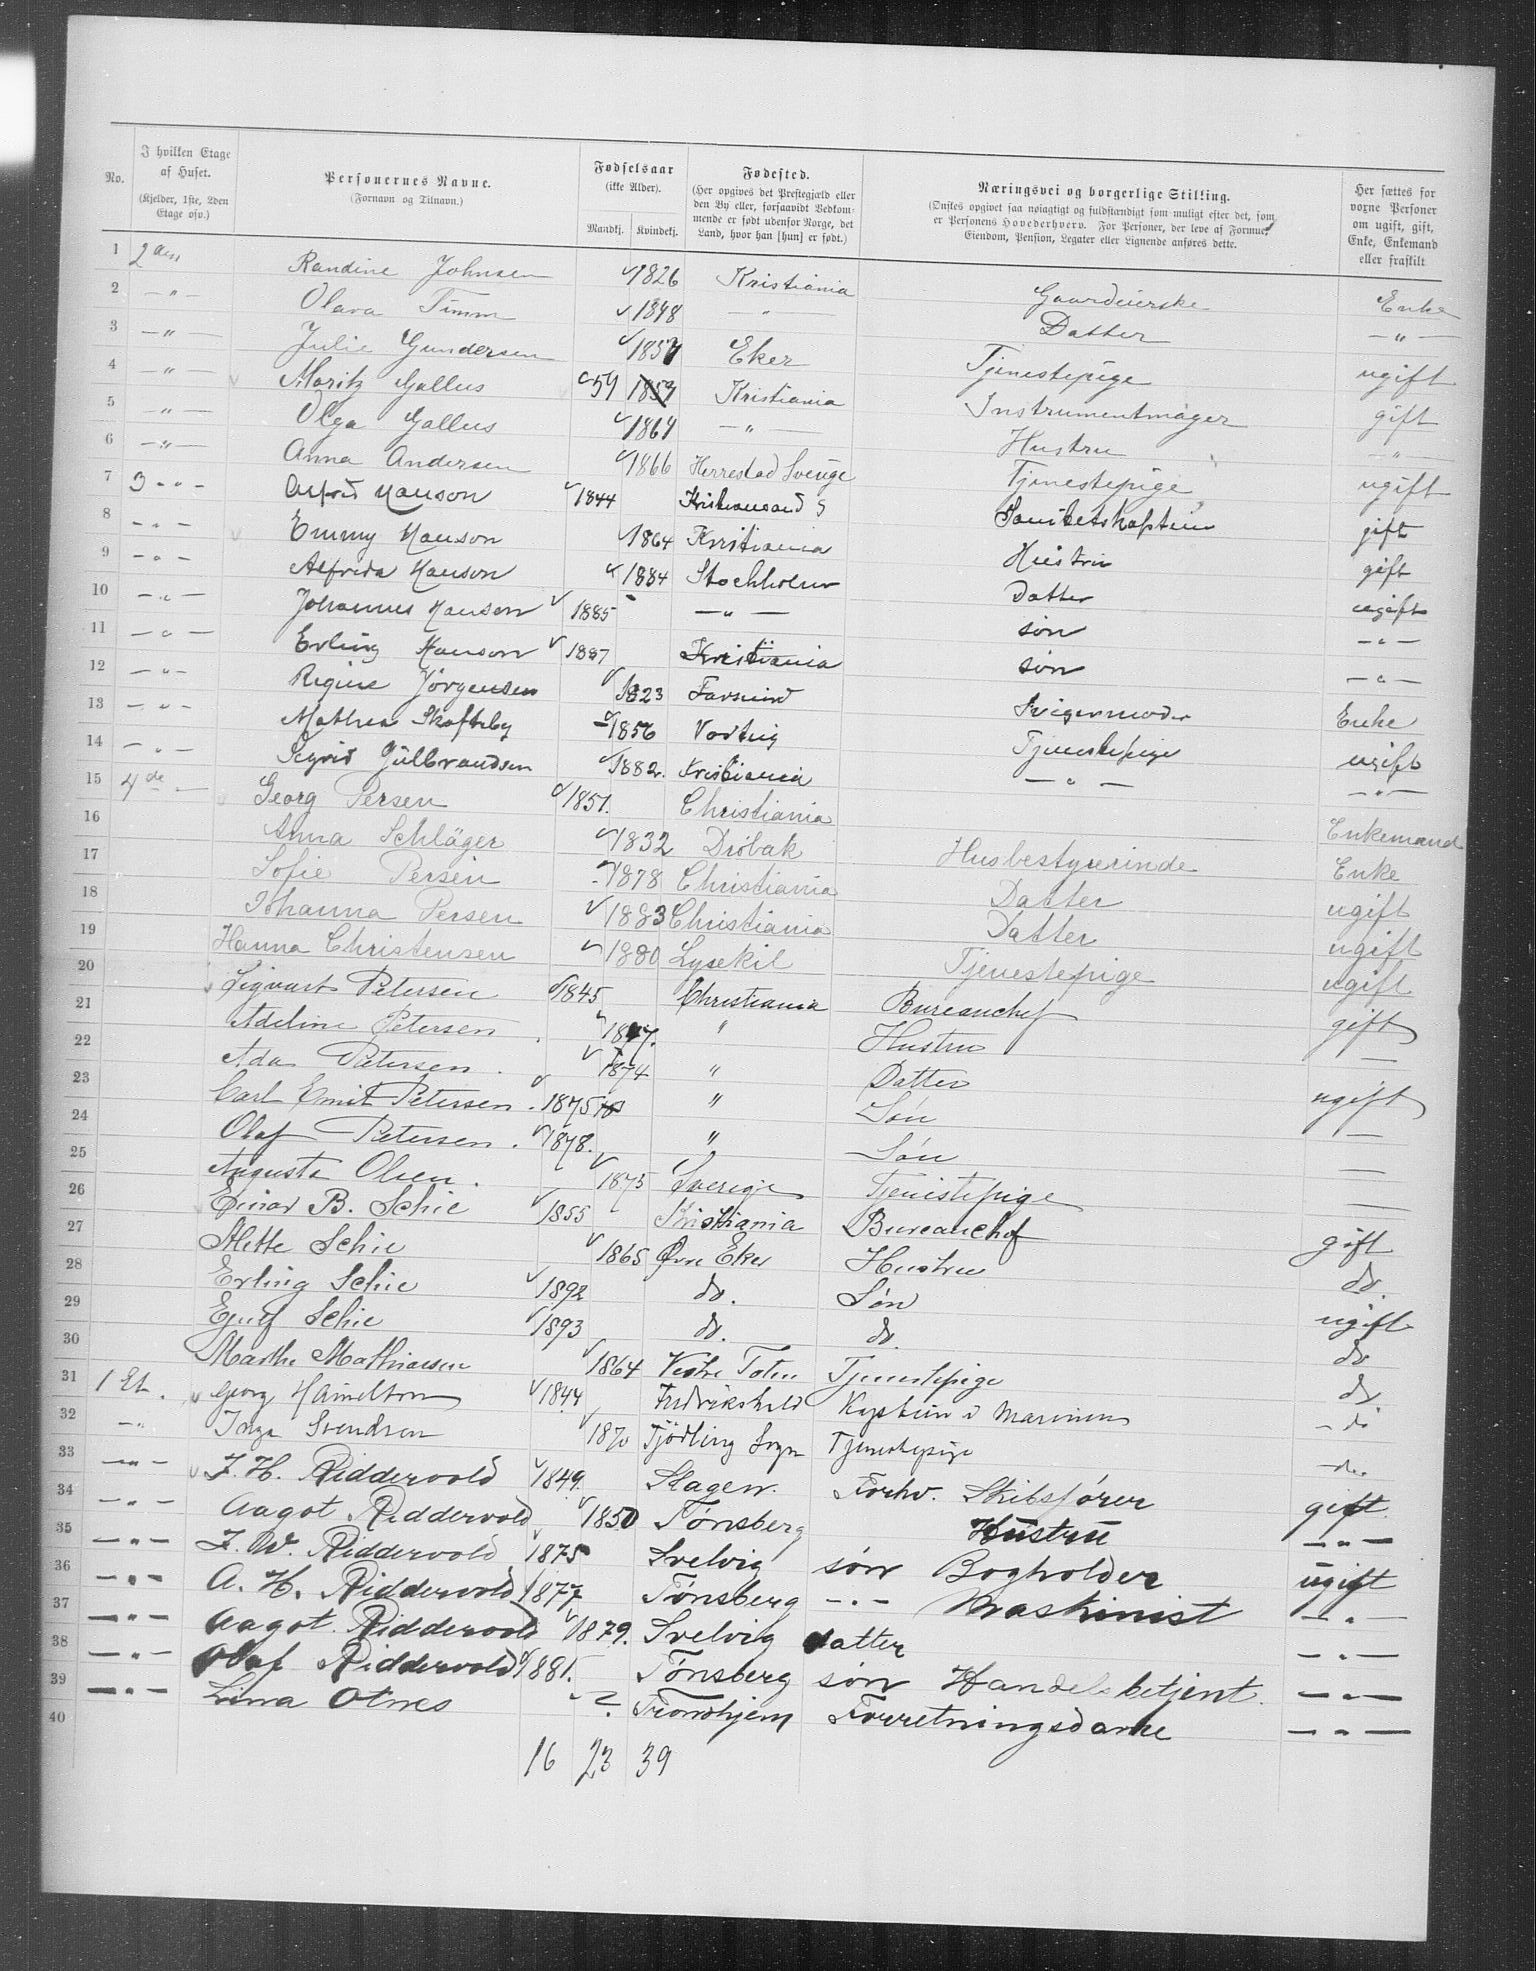 No. | I hvilken Etage af Huset. (Kjelder, 1ste, 2den Etage osv.) | Personernes Navne. (Fornavn og Tilnavn.) | Fødselsaar (ikke Alder). Mandkj. Kvindekj. | Fødested. (Her opgives det Prestegjæld eller den By eller, forsaavidt Vedkommende er født udenfor Norge, det Land, hvor han [hun] er født.) | Næringsvei og borgerlige Stilling. (Ønskes opgivet saa nøiagtigt og fuldstændigt som muligt efter det, som er Personens Hovederhverv. For Personer, der leve af Formue, Eiendom, Pension, Legater eller Lignende anføres dette. | Her sættes for voxne Personer om ugift, gift, Enke, Enkemand eller fraskilt
1 2den Randine Johnsen 1826 Kristiania Gaardeierske Enke
2 —"— Olava Timm 1848 —"— Datter —"—
3 —"— Julie Gundersen 1857 Eker Tjenestepige ugift
4 —"— Moritz Gallus 59 1859 Kristiania Instrumentmager gift
5 —"— Olga Gallus 1864 —"— Hustru —"—
6 —"— Anna Andersen 1866 Herrestad Sverige Tjenestepige ugift
7 3 —"— Alfred Hanson 1844 Kristiansand S Sanitetskaptein gift
8 —"— Emmy Hanson 1864 Kristiania Hustru gift
9 —"— Alfrida Hanson 1884 Stockholm Datter ugift
10 —"— Johannes Hanson 1885 —"— søn —"—
11 —"— Erling Hanson 1887 Kristiania søn —"—
12 —"— Regine Jörgensen 1823 Farsund Svigermoder Enke
13 —"— Mathea Skofteby 1856 Tjenestepige ugift
14 —"— Sigrid Gulbrandsen 1882. Kristiania —"— —"—
15 4de — Georg Persen 1851. Christiania Enkemand
16 Anna Schläger 1832 Drøbak Husbestyrerinde Enke
17 Sofie Persen 1878 Christiania Datter ugift
18 Johanna Persen 1883 Christiania Datter ugift
19 Hanna Christensen 1880 Lysekil Tjenestepige ugift
20 Sigvart Petersen 1845 Christiania Bureauchef gift
21 Adeline Petersen 1847. " Hustru —
22 Ada Petersen 1874 " Datter ugift
23 Carl Emil Petersen 1875 " Søn —
24 Olaf Petersen 1878. " Søn —
25 Augusta Olsen 1875 Sverige Tjenistepige —
26 Einar B. Schie 1855 Kristiania Bureauchef gift
27 Mette Schie 1865 Øvre Eker Hustru do.
28 Erling Schie 1892 do. Søn ugift
29 Ejulf Schie 1893 do. do. do
30 Marthe Mathiasen 1864 Vestre Toten Tjenestepige do
31 1 Et. Georg Hamelton 1844 Fredrikshald Kaptein i Marinen — do
32 —"— Inga Svendsen 1870 Tjölling Sogn Tjenestepige — do
33 —"— F. H. Riddervold 1849. Skagen Forhv. Skibsfører gift
34 —"— Aagot Riddervold 1850 Tønsberg Hustru —"—
35 —"— F. W. Riddervold 1875 Svelvig søn Bogholder ugift
36 —"— A. H. Riddervold 1877 Tønsberg —"— Maskinist —"—
37 —"— Aagot Riddervold 1879. Svelvig datter —"—
38 —"— Olaf Riddervold 1881. Tønsberg søn Handelsbetjent. —"—
39 —"— Lina Otnes —?. Trondhjem Forretningsdame —"—
40
16 23 39